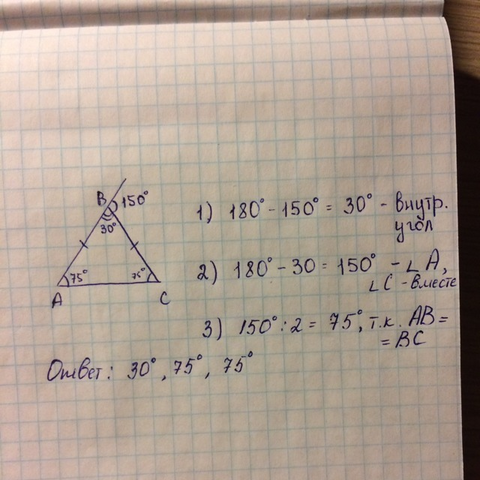 B 150°
30°
75° 75°
A C
1) 180° - 150° = 30° - внутр.
угол
2) 180° - 30 = 150° - ∟A,
∟C - вместе
3) 150° : 2 = 75°, т.к. AB =
= BC
Ответ: 30°, 75°, 75°